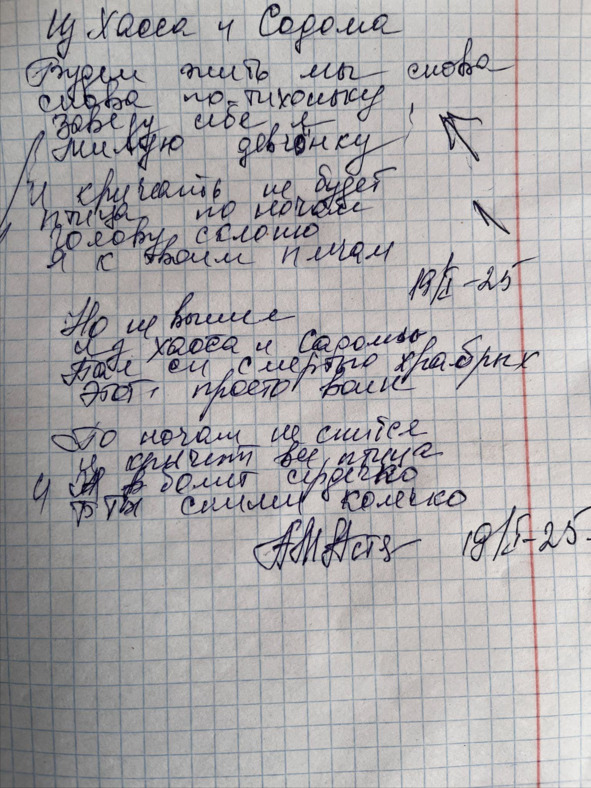 Из Хаоса и Содома
Будем жить мы снова
снова по-тихоньку
заведу себе я
милую девчонку
И кричать не будет
птица по ночам
Голову склоню
я к твоим плечам
19/I-25
Но не вышел
из хаоса и Садомы
Пал он смертью храбрых
Этот, просто воин
По ночам не спится
и кричит все птица
И в болит сердечко
Ты сними колечко
19/I-25.